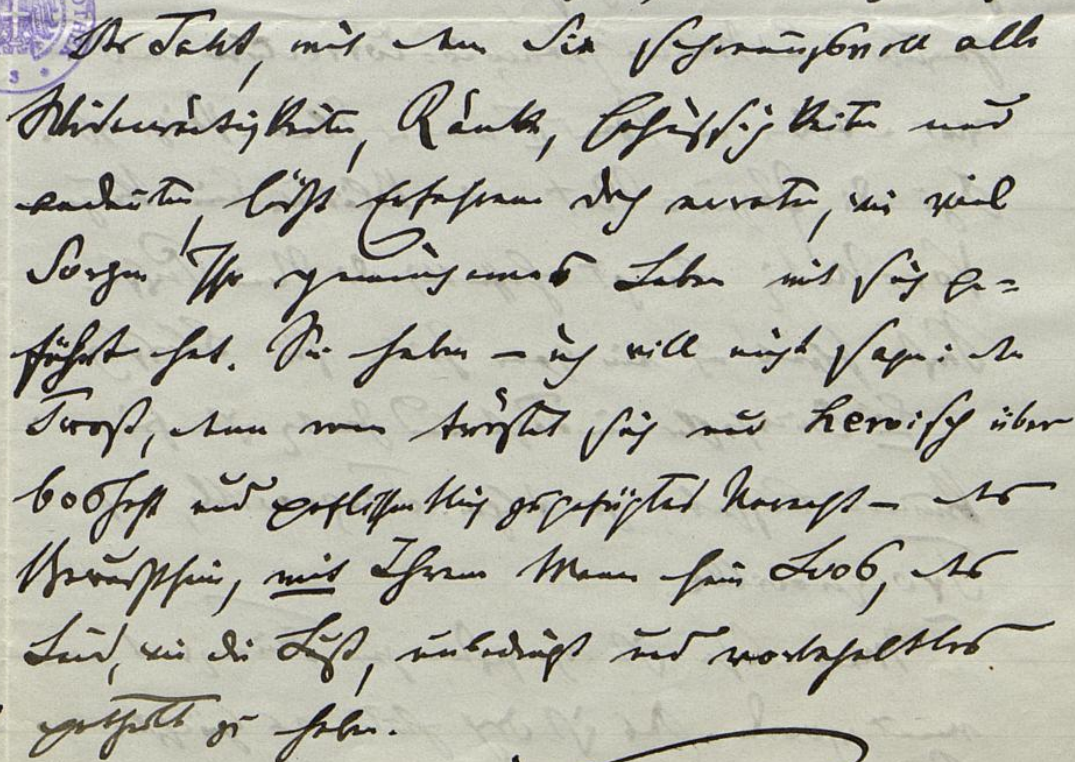 Der Takt, mit dem Sie schonungsvoll alle
Widerwärtigkeiten, Ränke, Gehässigkeiten nur
andeuten, läßt Erfahrene doch erraten, wie viel
Sorgen Ihr gemeinsames Leben mit sich ge-
führt hat. Sie haben – ich will nicht sagen: den
Trost, denn man tröstet sich nur heroisch über
boshaft und geflissentlich zugefügtes Unrecht – das
Bewusstsein, mit Ihrem Mann sein Loos, das
Leid, wie die Lust, unbedingt und vorbehaltlos
getheilt zu haben.